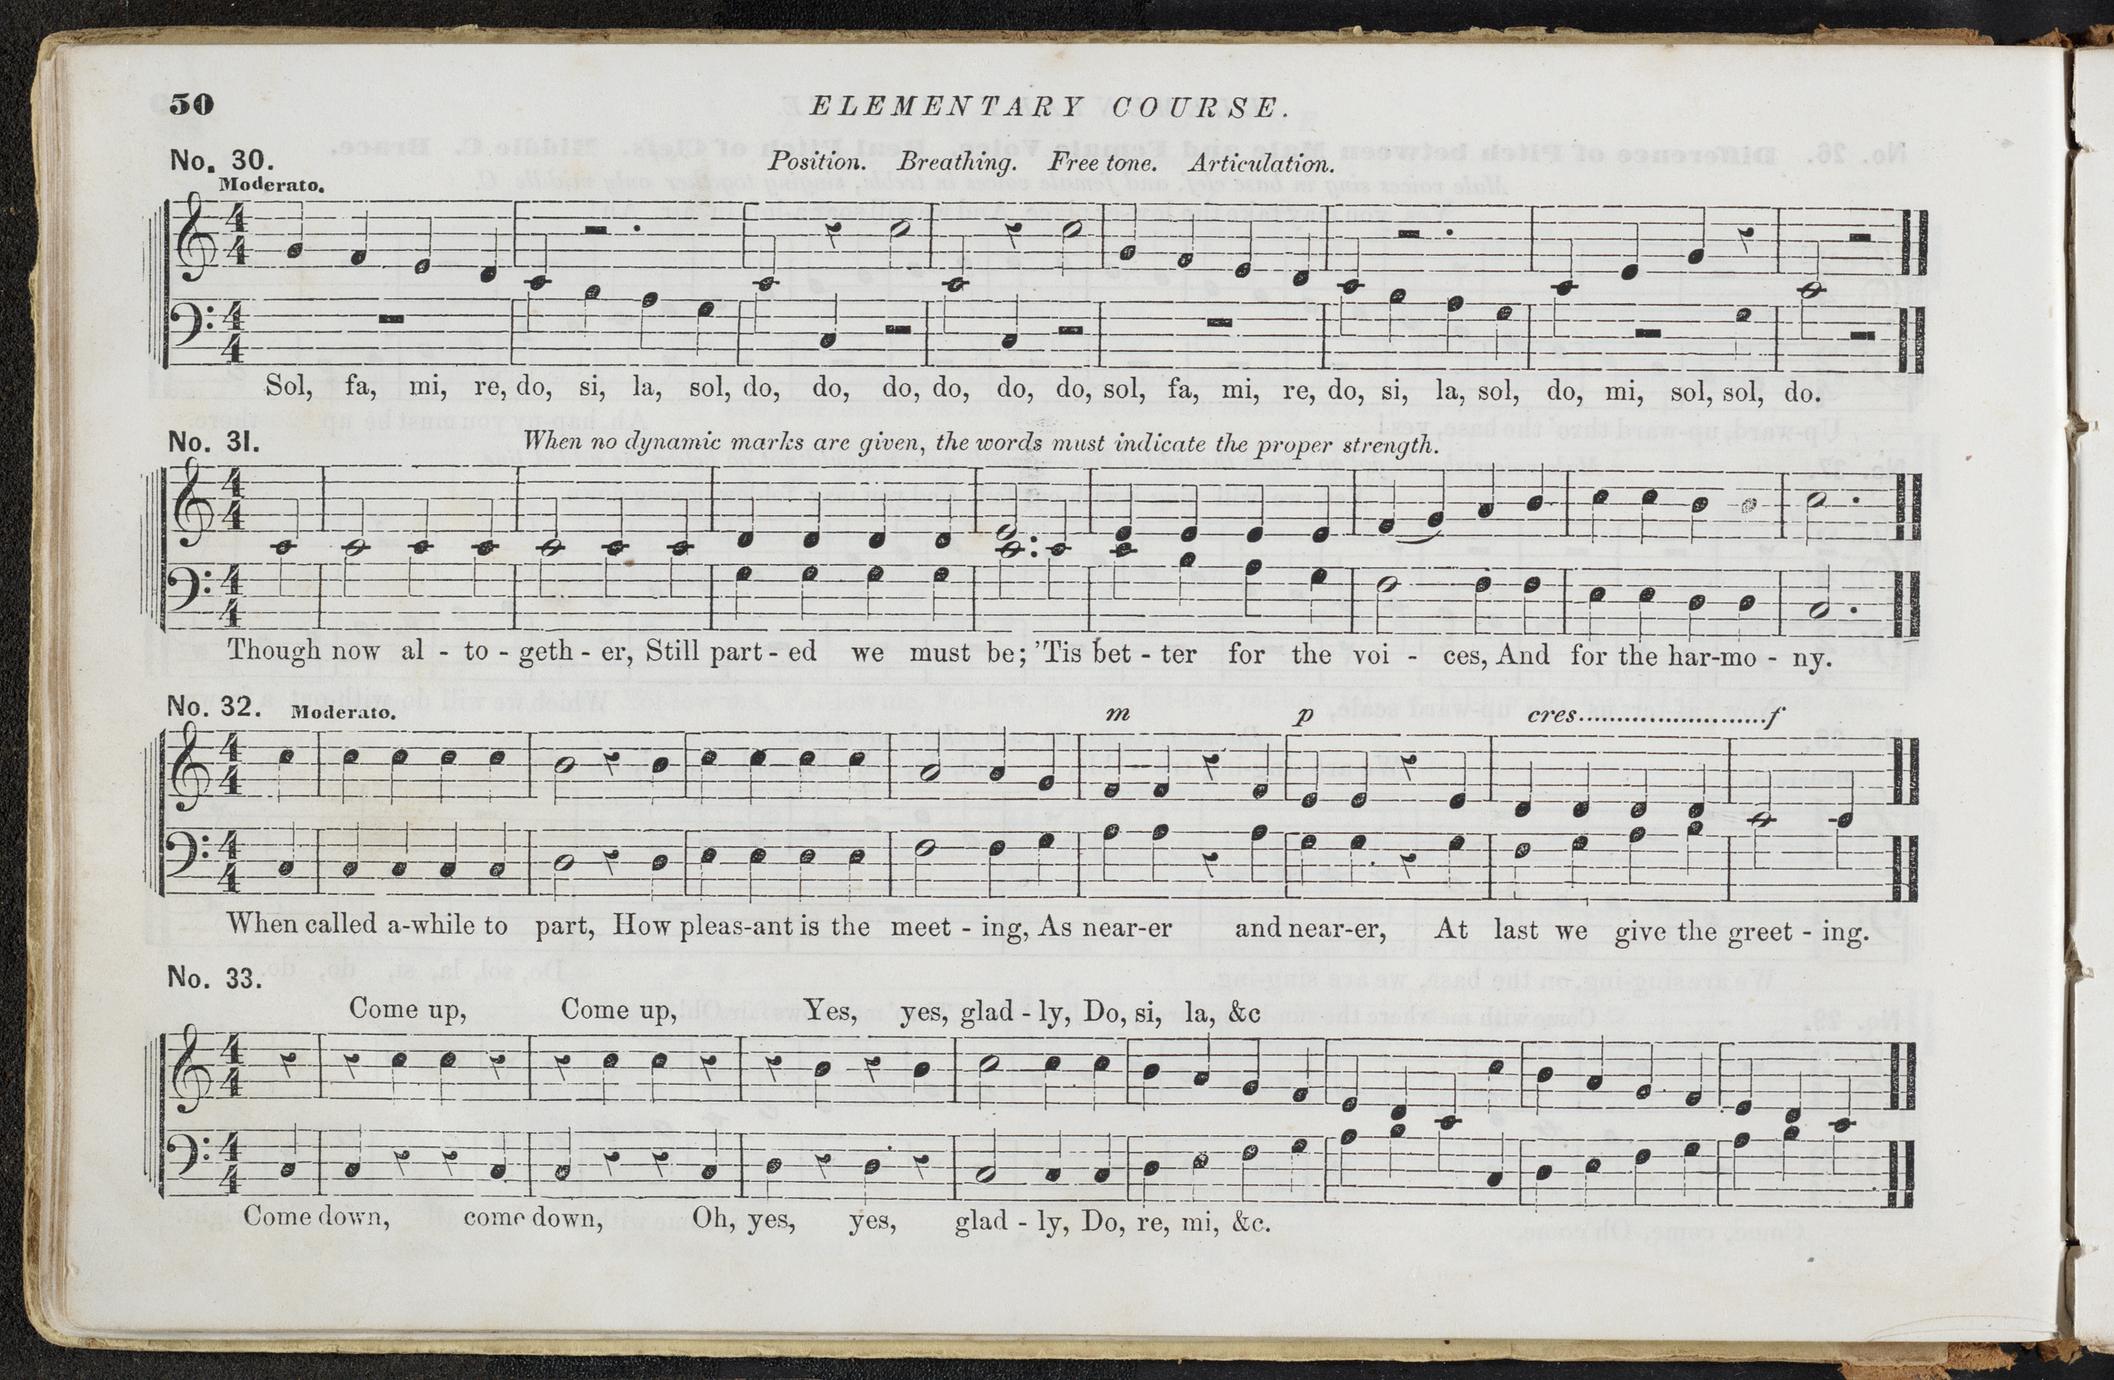 50
ELEMENTARY COURSE.
No. 30.
Position. Breathing. Free tone. Articulation.
Moderato.
4
4
4
4
Sol, fa, mi, re, do, si, la, sol, do, do, do, do, do, do, sol, fa, mi, re, do, si, la, sol, do, mi, sol, sol, do.
No. 31.
When no dynamic marks are given, the words must indicate the proper strength.
4
4
4
4
Though now al - to - geth - er, Still part - ed we must be; 'Tis bet - ter for the voi - ces, And for the har-mo - ny.
No. 32. Moderato. m p cres........................f
4
4
4
4
When called a-while to part, How pleas-ant is the meet - ing, As near-er and near-er, At last we give the greet - ing.
No. 33.
Come up, Come up, Yes, yes, glad - ly, Do, si, la, &c
4
4
4
4
Come down, come down, Oh, yes, yes, glad - ly, Do, re, mi, &c.